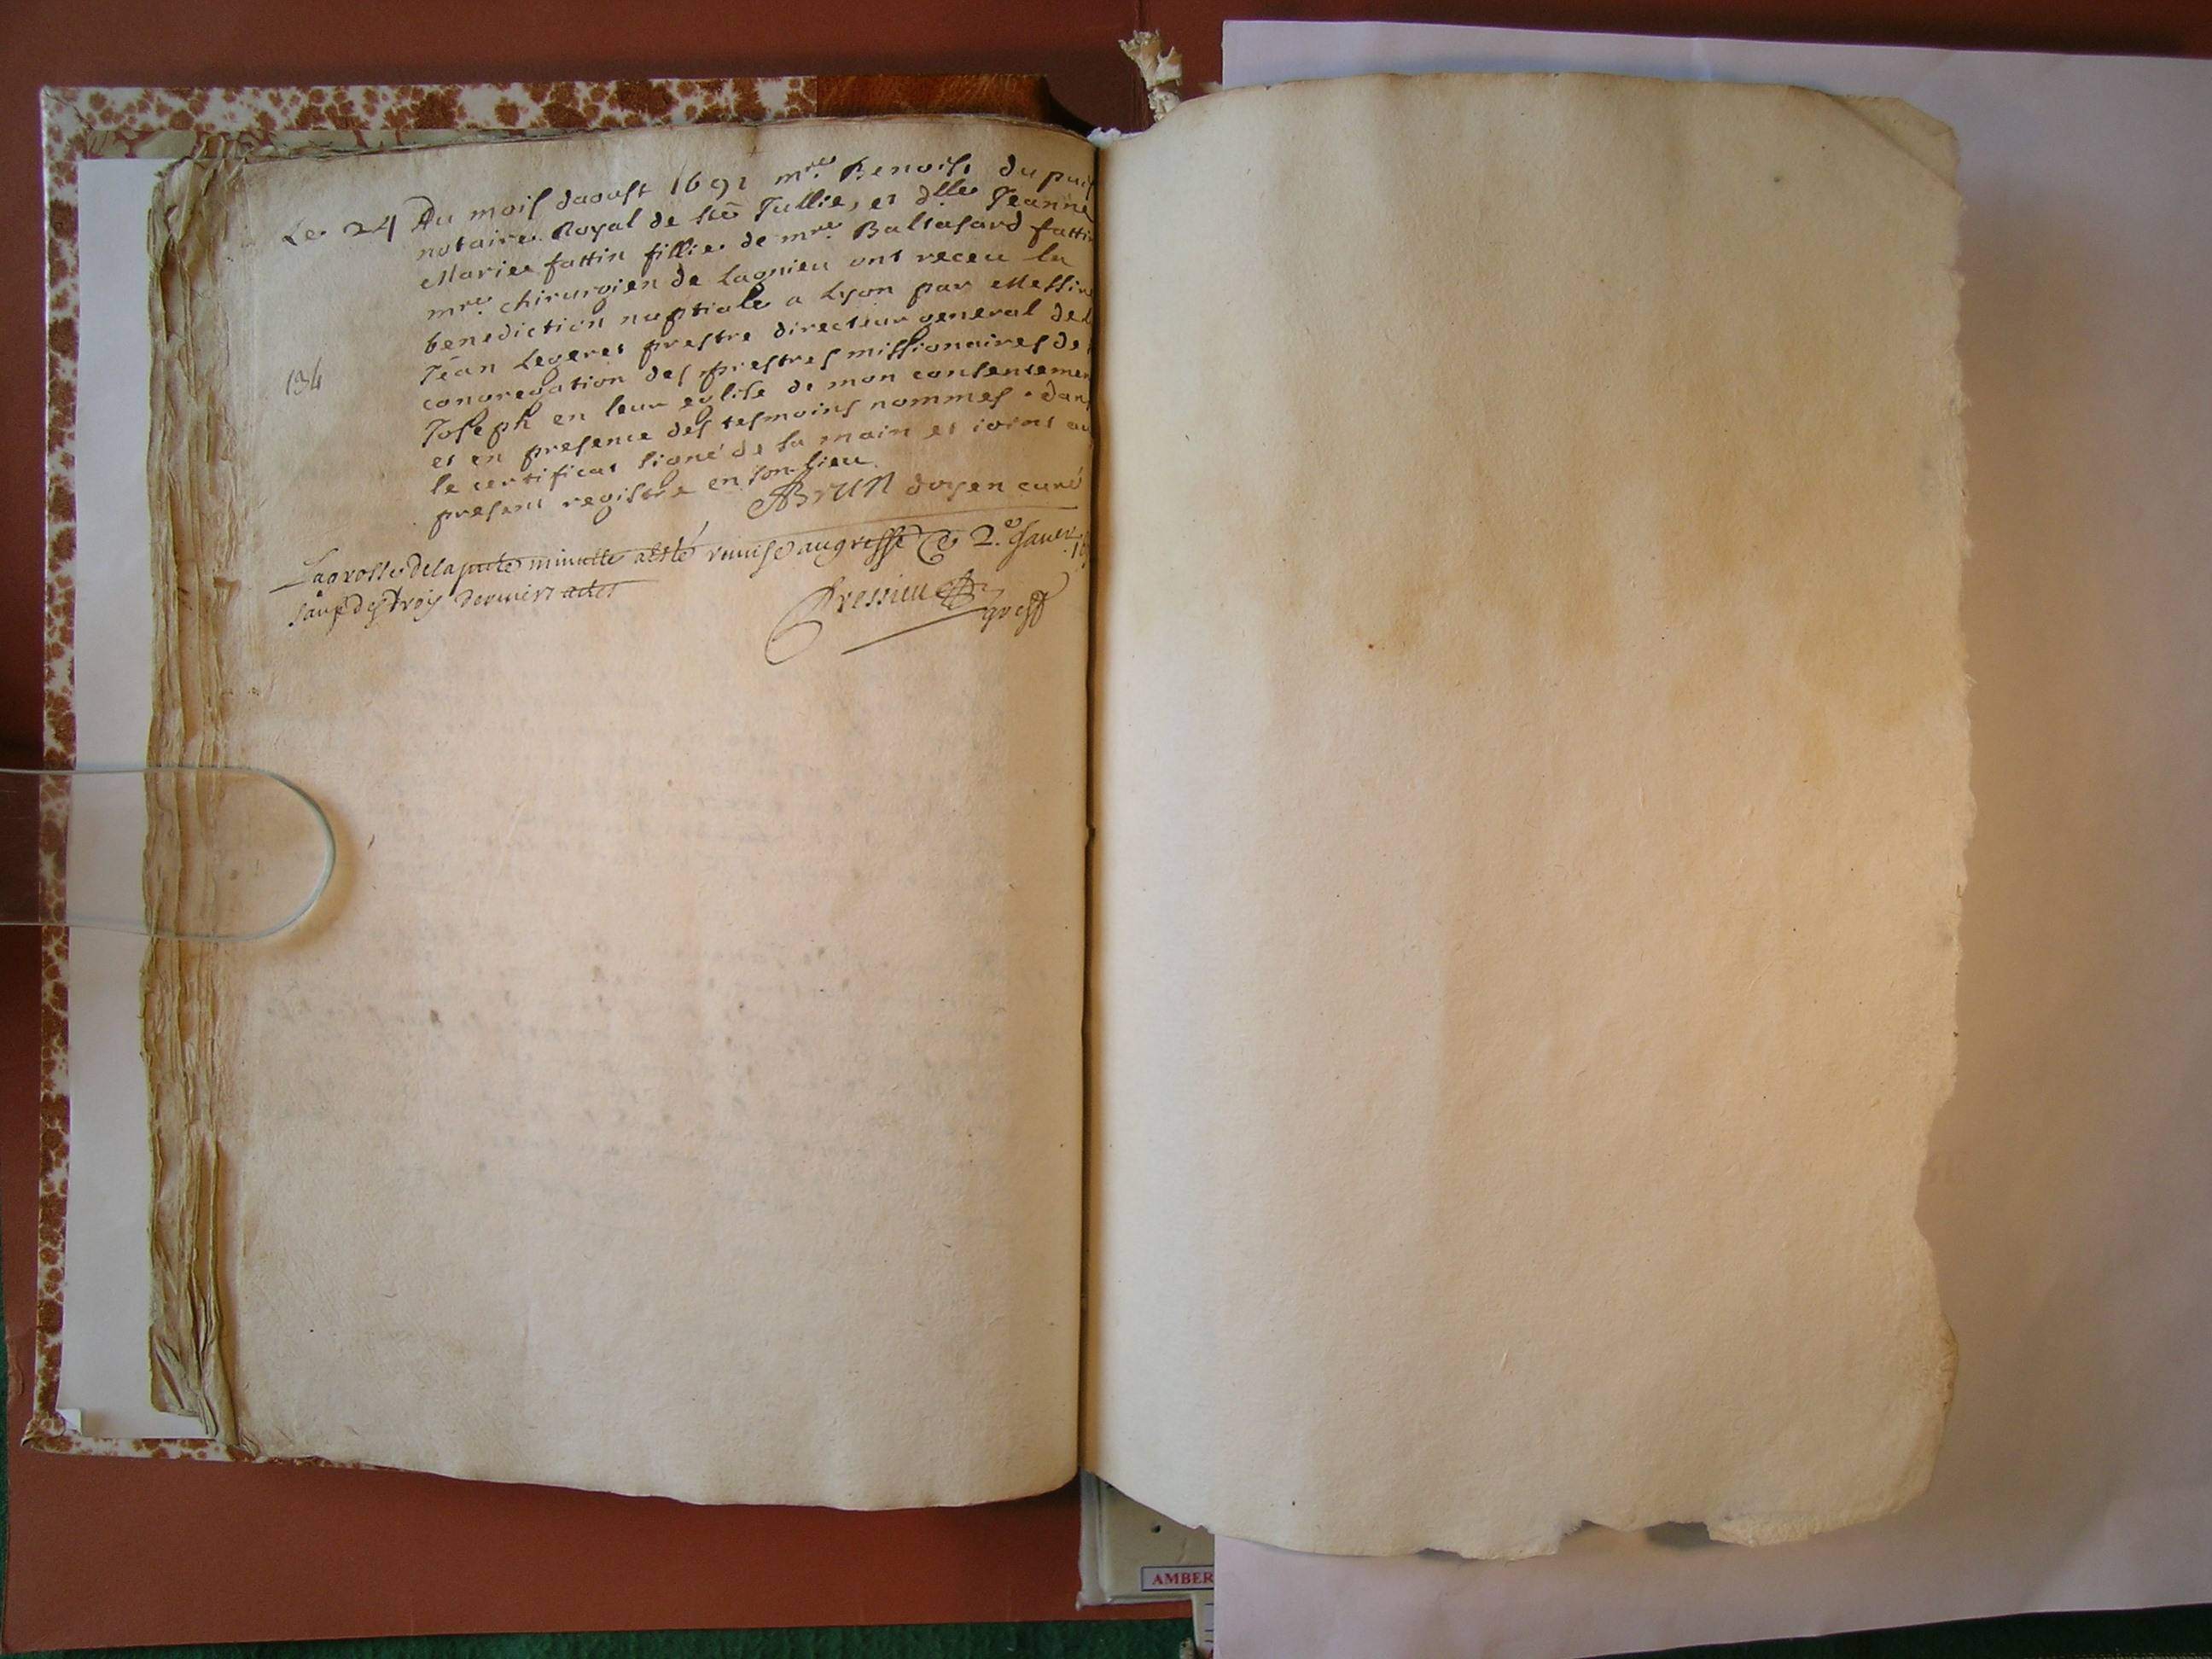 Le 24 Du mois daoust 1691 mre Benoist du puis
notaire Royal de Ste Jullie, et dlle Jeanne
Marie fattin fillie de mre Baltasard fattin
mre chirurgien de Lagnieu ont receu la
benediction nuptiale a Lyon par Messire
Jean Legeret prestre directeur general de
congregation des prestres missionaires de
134
Joseph en leur eglise de mon consentemen
et en presence des tesmoins nommes dans
le certificat signé de sa main et joint au
present registre en son lieu
Brun doyen curé
La grosse de la pnte minutte a esté remise au greffe Ce 2e Janer
Sauf des trois derniers actes
Cressieu
greff
AMBER